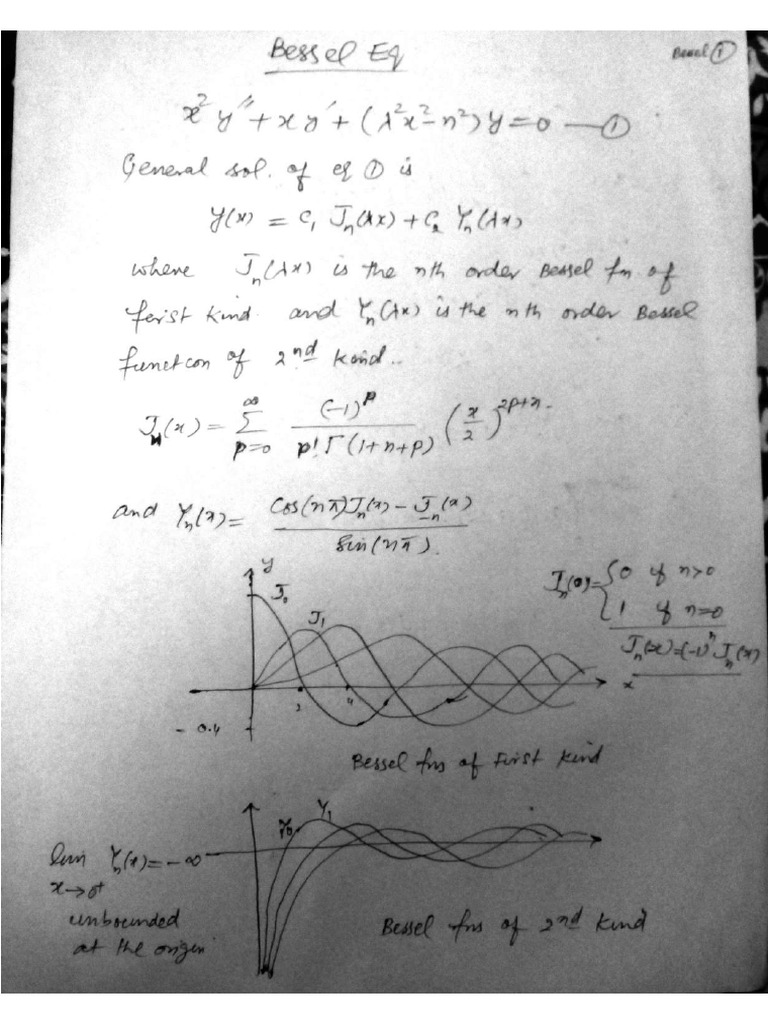 Bessel Eq
Bessel ①
x² y'' + x y' + (λ²x² - n²) y = 0 — ①
General sol. of eq ① is
y(x) = C₁ Jₙ(λx) + C₂ Yₙ(λx)
where Jₙ(λx) is the nth order Bessel fn of
ferist kind. and Yₙ(λx) is the nth order Bessel
function of 2nd kind..
Jₙ(x) = ∑_{p=0}^{∞} (-1)^p / (p! Γ(1+n+p)) (x/2)^{2p+n}
and Yₙ(x) = (Cos(nπ) Jₙ(x) - J₋ₙ(x)) / Sin(nπ).
y
J₀
J₁
Jₙ(0) = { 0 if n>0
1 if n=0
Jₙ(-x) = (-1)ⁿ Jₙ(x)
2
4
x
- 0.4
Bessel fns of First kind
Y₀
Y₁
lim Yₙ(x) = -∞
x→0⁺
unbounded
at the origin
Bessel fns of 2nd kind